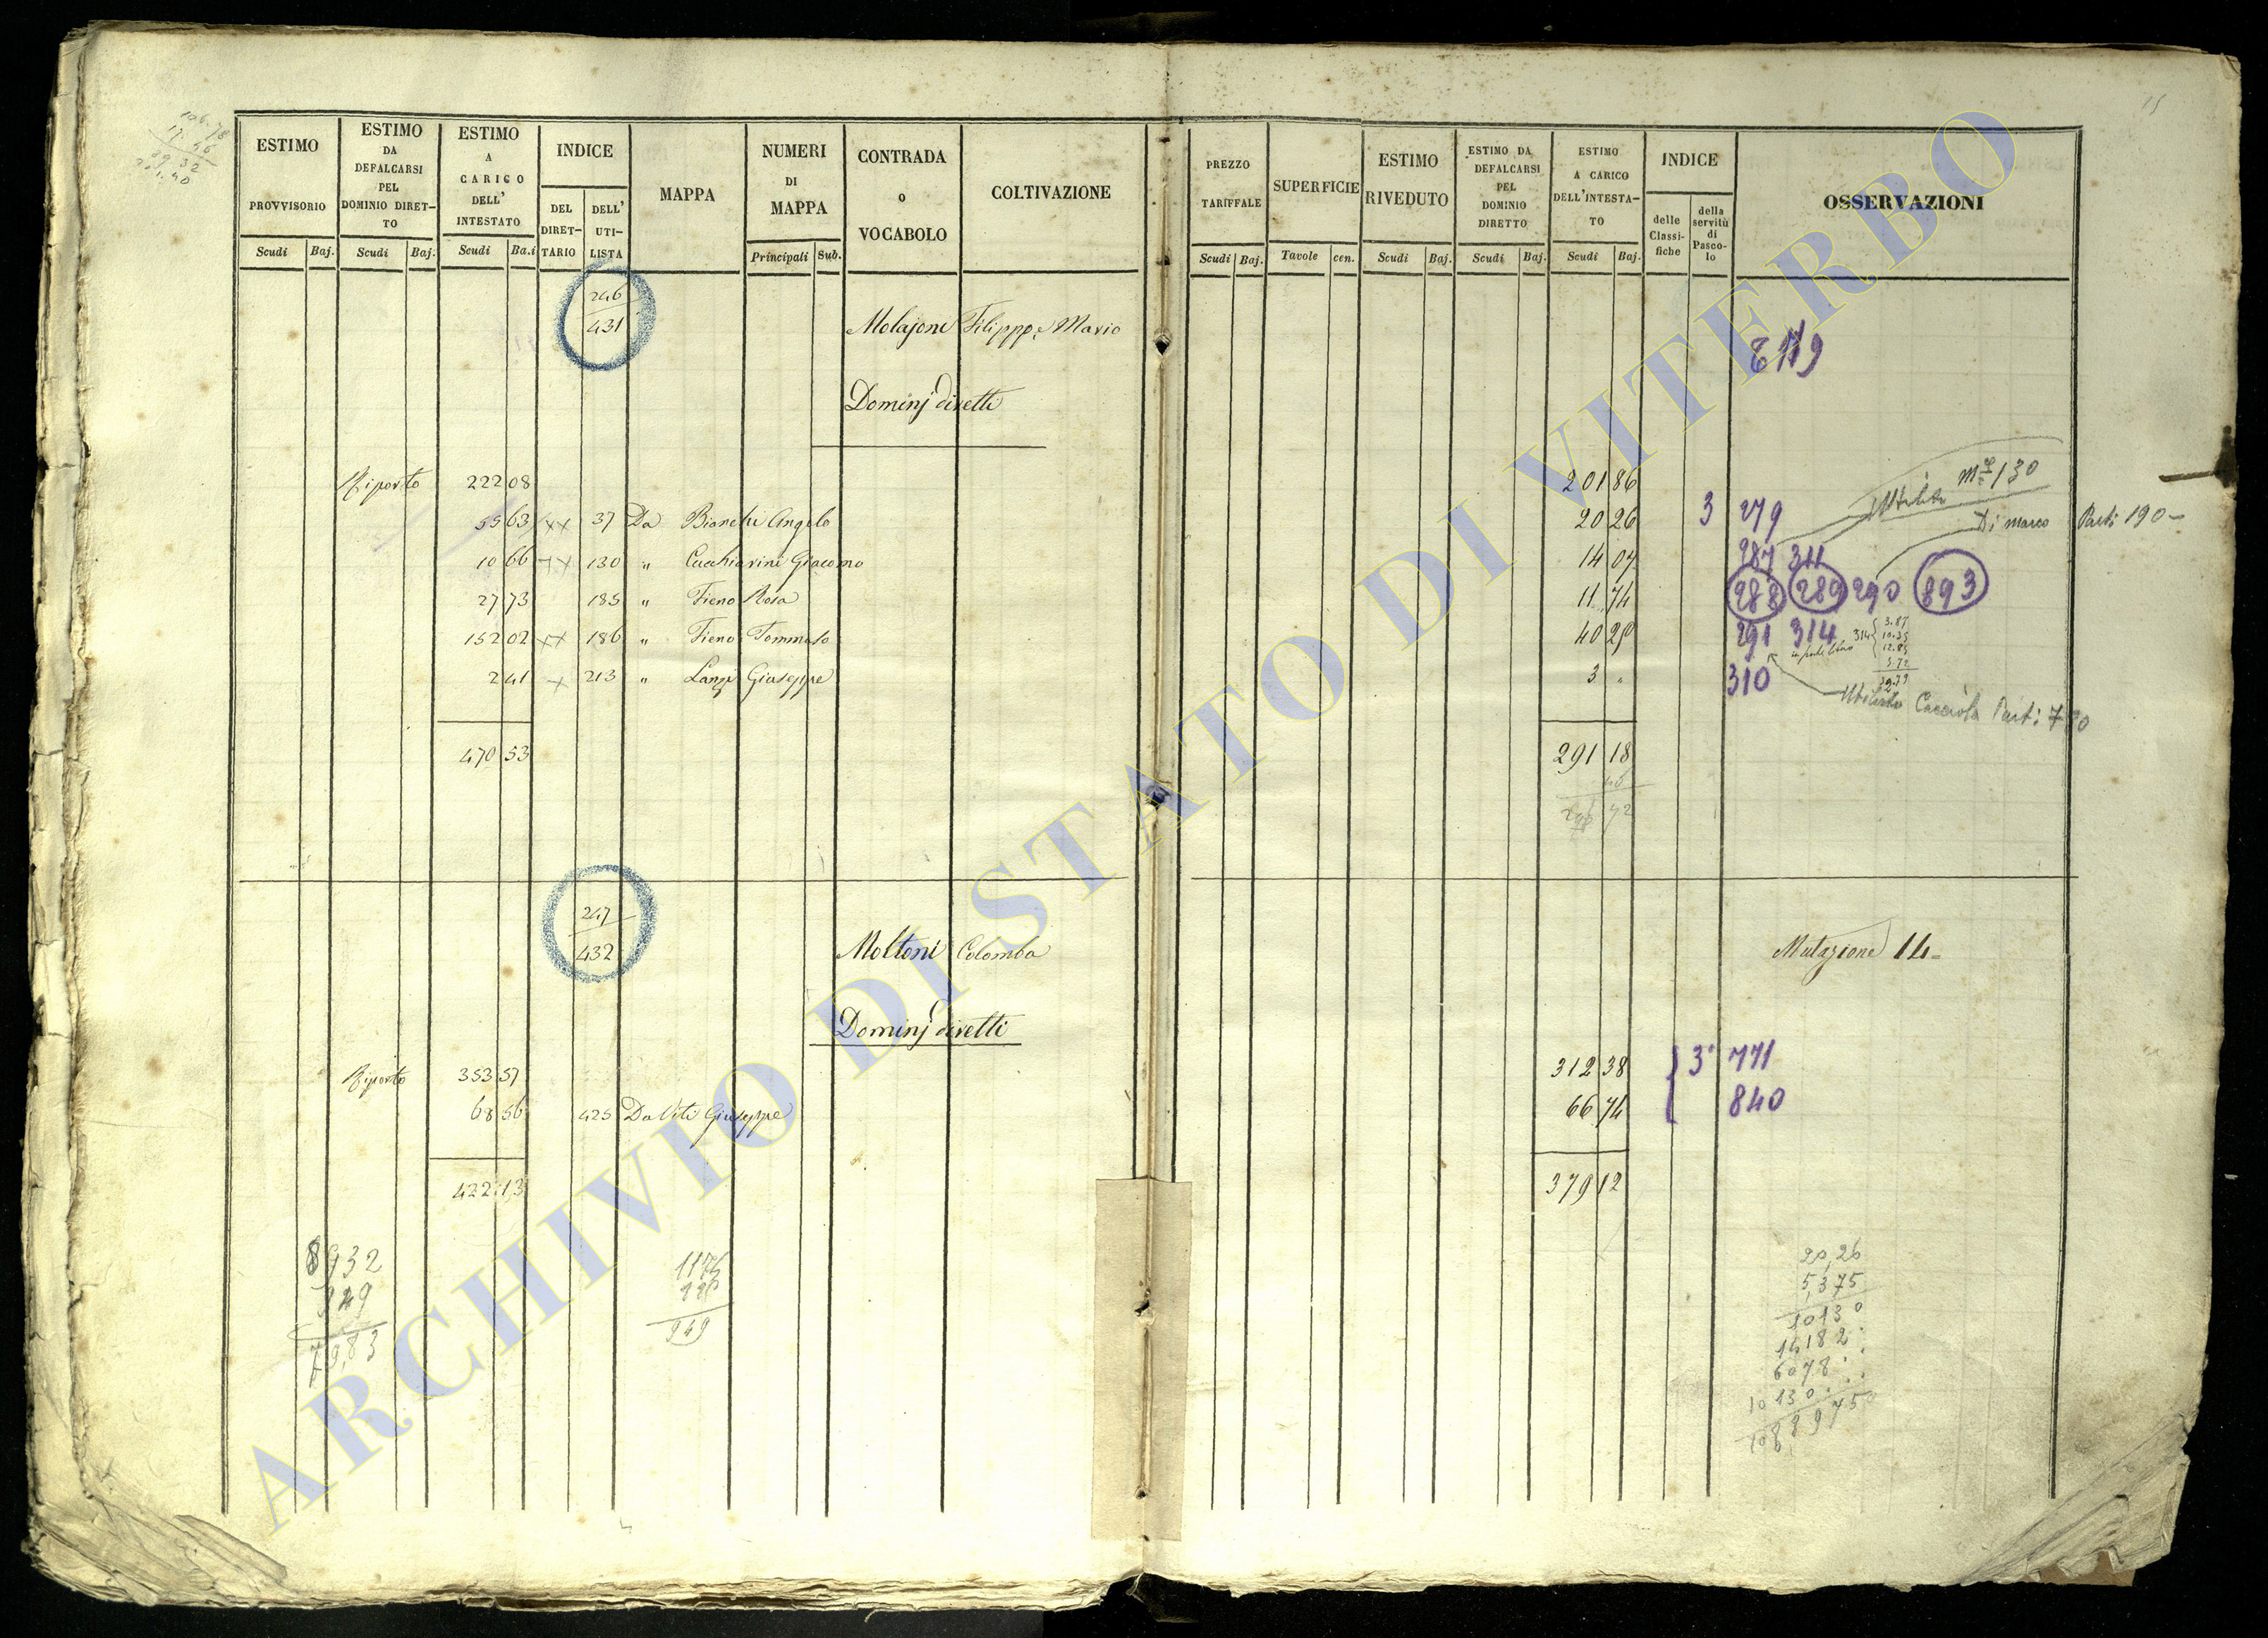 106.78
17.46
89.32
ESTIMO
PROVVISORIO
Scudi Baj.
ESTIMO
DA
DEFALCARSI
PEL
DOMINIO DIRET-
TO
Scudi Baj.
ESTIMO
A
CARICO
DELL'
INTESTATO
Scudi Ba.i
INDICE
DEL
DIRET-
TARIO
DELL'
UTI-
LISTA
MAPPA
NUMERI
DI
MAPPA
Principali Sub.
CONTRADA
o
VOCABOLO
COLTIVAZIONE
246
431
Molajoni Filippo e Mario
Dominj diretti
Riporto 222 08
55 63 xx 37 Da Bianchi Angelo
10 66 xx 130 " Cucchiarini Giacomo
27 73 185 " Fieno Rosa
152 02 xx 186 " Fieno Tommaso
2 41 x 213 " Lanzi Giuseppe
470 53
247
432
Moltoni Colomba
Dominj diretti
Riporto 353 57
68 56 425 Da Viti Giuseppe
422 13
8932
949
79,83
1175
226
949
15
PREZZO
TARIFFALE
Scudi Baj.
SUPERFICIE
Tavole cen.
ESTIMO
RIVEDUTO
Scudi Baj.
ESTIMO DA
DEFALCARSI
PEL
DOMINIO
DIRETTO
Scudi Baj.
ESTIMO
A CARICO
DELL'INTESTA-
TO
Scudi Baj.
INDICE
delle
Classi-
fiche
della
servitù
di
Pasco-
lo
OSSERVAZIONI
201 86
130
20 26 3 279 Di marco Parti 190-
14 07 287 311
11 74 288 289 290 893
40 25 291 314
314 3.87
10.35
12.85
5.72
3 " 310
Utilista Parti 780
291 18
Mutazione 14=
312 38 3° 771
66 74 840
379 12
20,26
5,375
10130
14182
6078
10130
1088975
ARCHIVIO DI STATO DI VITERBO